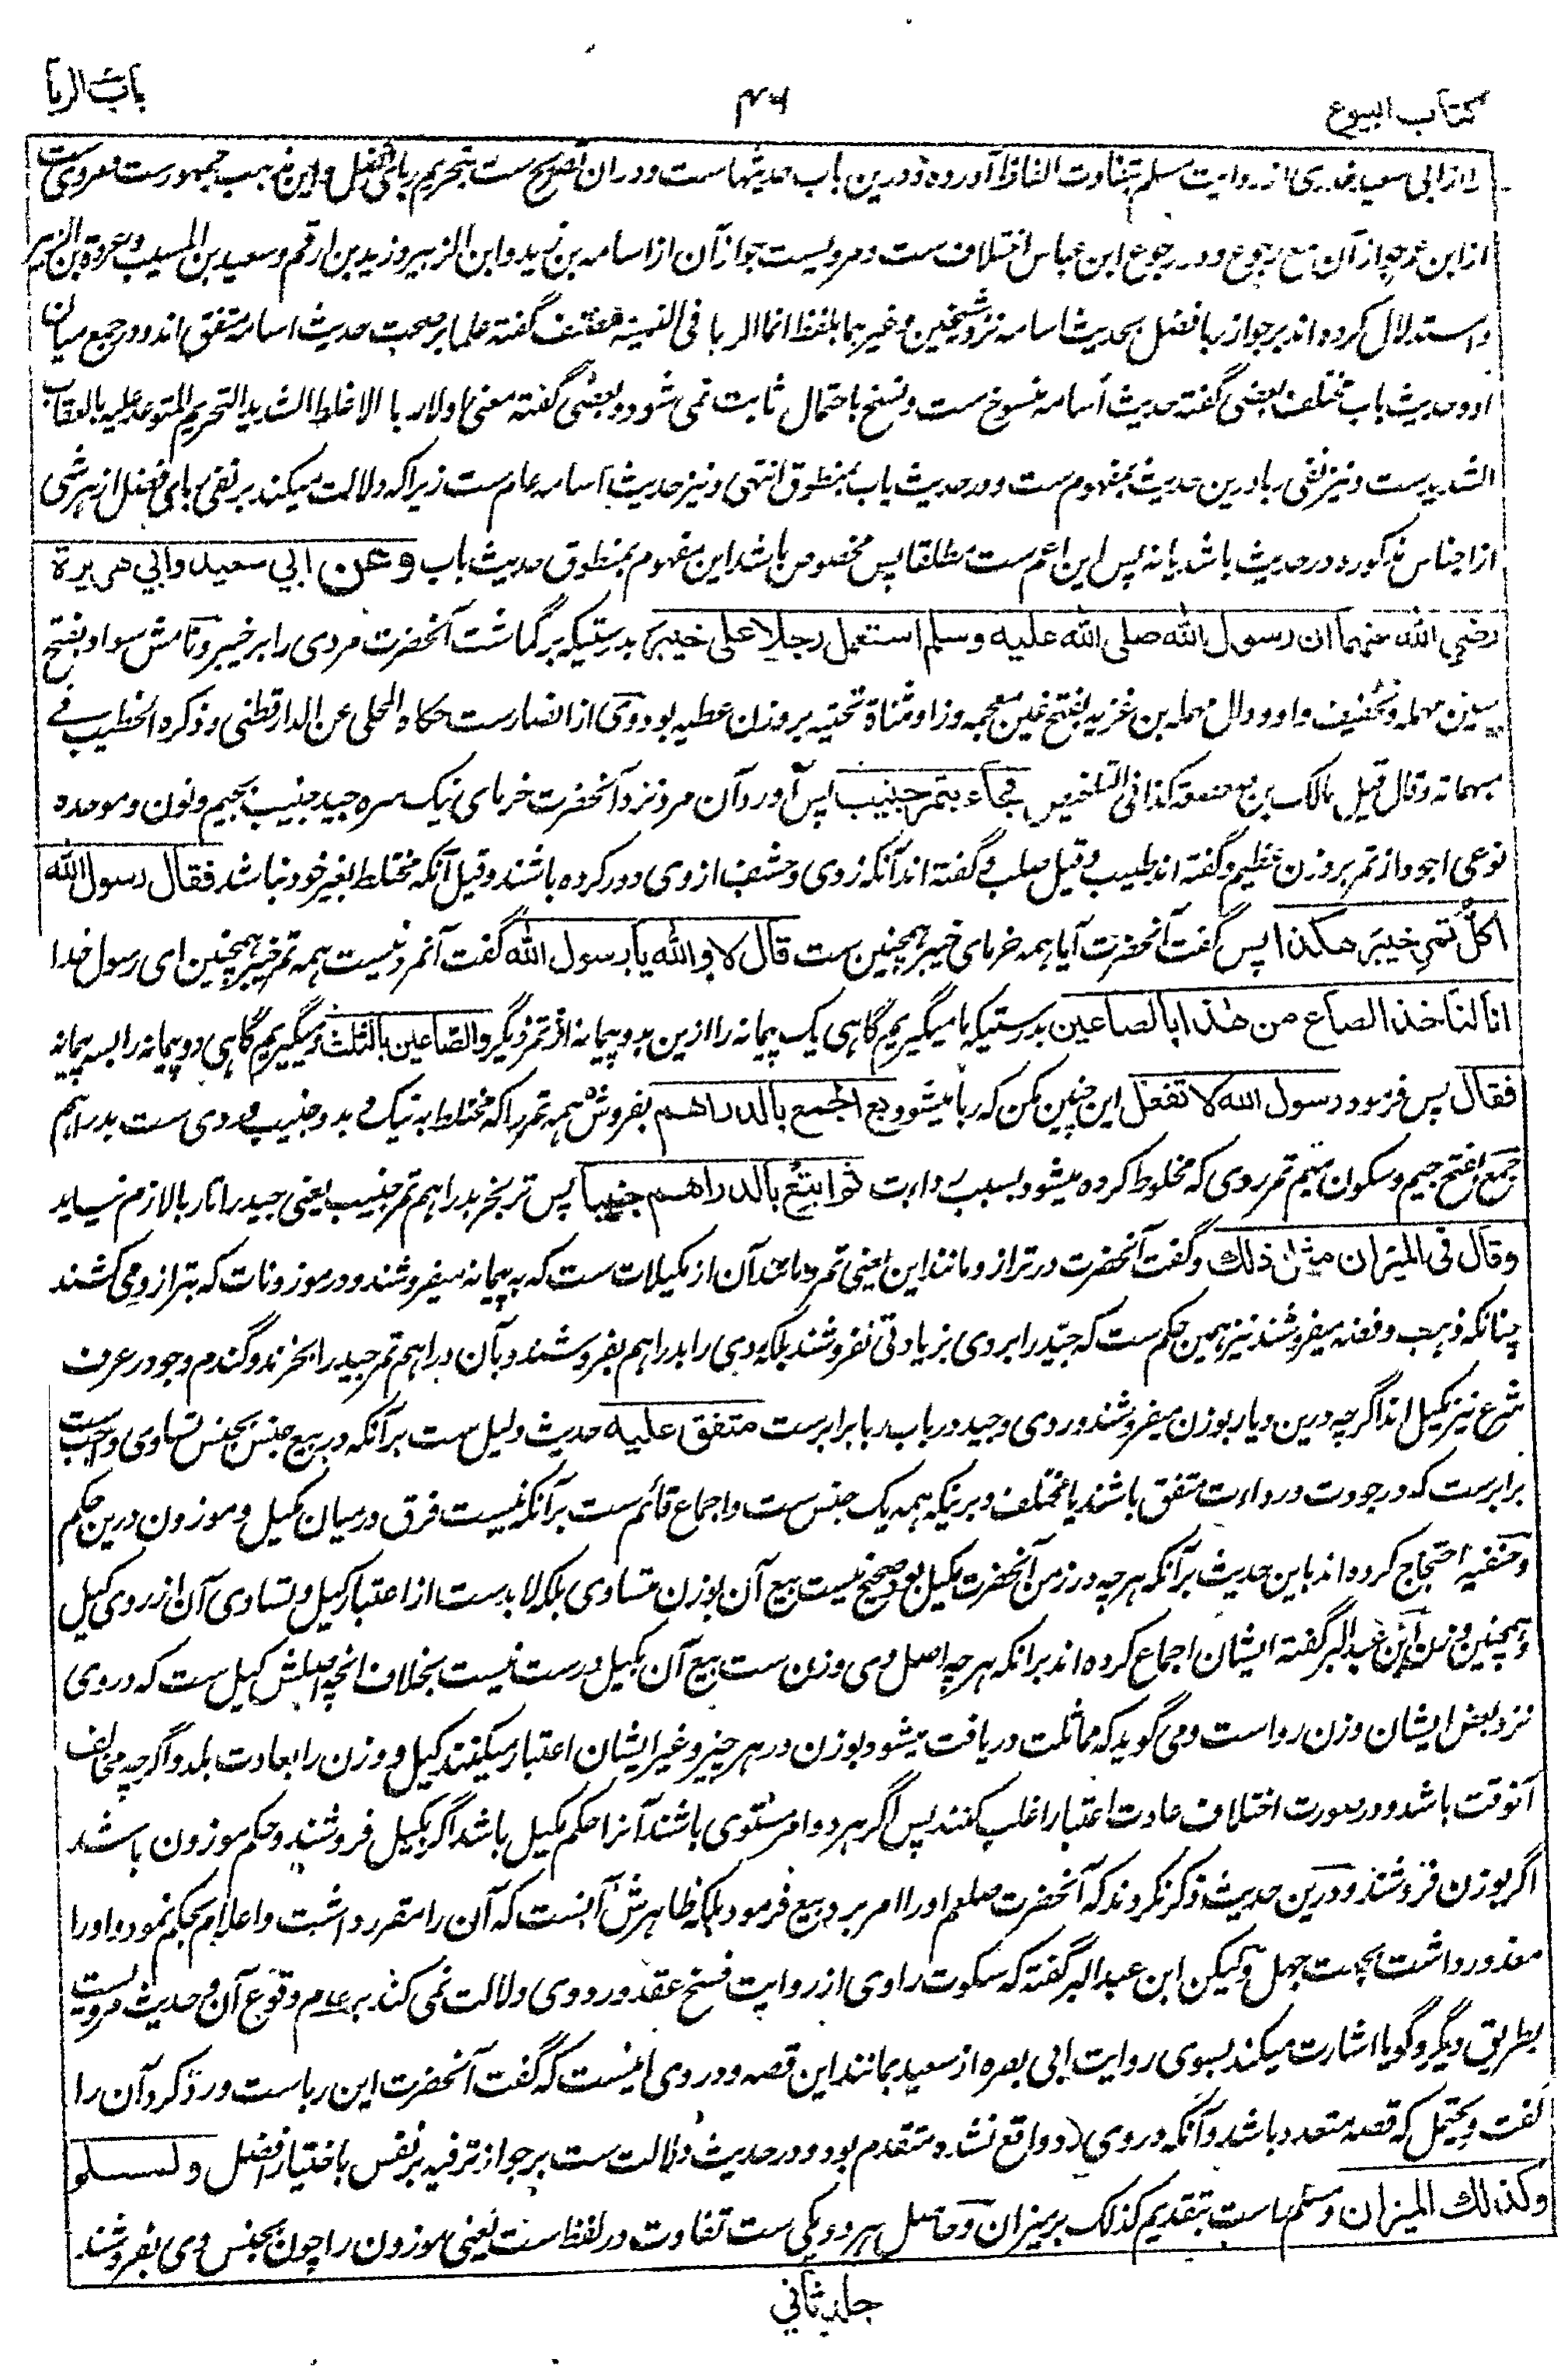 کتاب البیوع
۴۶
باب الربا
از ابی سعید خدری از روایت مسلم بتفاوت الفاظ آورده و درین باب حدیثهاست و در ان تصریح ست بتحریم ربای فضل و این مذہب جمہورست و مرویست
از ابن عمر جواز آن مع رجوع و در رجوع ابن عباس اختلاف ست و مرویست جواز آن از اسامہ بن زید و ابن الزبیر و زید بن ارقم و سعید بن المسیب و عروۃ بن الزبیر
و استدلال کرده اند بر جواز ربا فضل بحدیث اسامہ نزد شیخین و غیرہما بلفظ انما الربا فی النسیئہ مصنف گفتہ علما بر صحت حدیث اسامہ متفق اند و در جمع میان
او و حدیث باب مختلف بعضی گفتہ حدیث اسامہ منسوخ ست و نسخ باحتمال ثابت نمی شود و بعضی گفتہ معنی اولا ربا الاغلظ الشدید التحریم المتوعد علیہ بالعقاب
الشدید ست و نیز نفی ربا درین حدیث بمفہوم ست و در حدیث باب بمنطوق انتہی و نیز حدیث اسامہ عام ست زیرا کہ دلالت میکند بر نفی ربای فضل از ہر شی
از اجناس مذکورہ در حدیث باشد یا نہ پس این اعم ست مطلقا پس مخصوص باشد این مفہوم بمنطوق حدیث باب وعن ابي سعيد وابي هريرة
رضي الله عنهما ان رسول الله صلى الله عليه وسلم استعمل رجلا على خيبر بدرستیکہ برگماشت آنحضرت مردی را بر خیبر و نامش سواد بفتح
سین مہملہ و تخفیف واو و دال مہملہ بن غزیہ بفتح غین معجمہ و زا و مثناۃ تحتیہ بروزن عطیہ بود و وی از انصارست حکاہ المحلی عن الدارقطنی و ذکرہ الخطیب فی
مبہماتہ و قال قیل مالک بن صعصعہ کذا فی التلخیص فجاء بتمر جنيب پس آورد آن مرد نزد آنحضرت خرمای نیک سرہ جید جنیب بجیم و نون و موحدہ
نوعی اجود از تمر بروزن عظیم و گفتہ اند طیب و قیل صلب و گفتہ اند آنکہ زوی و حشف از وی دور کردہ باشند و قیل آنکہ مختلط بغیر خود نباشد فقال رسول الله
اكل تمر خيبر هكذا پس گفت آنحضرت آیا ہمہ خرمای خیبر ہمچنین ست قال لا والله يا رسول الله گفت آنمرد نیست ہمہ تمر خیبر ہمچنین ای رسول خدا
انا لناخذ الصاع من هذا بالصاعين بدرستیکہ ما میگیریم گاہی یک پیمانہ را ازین بدو پیمانہ از تمر دیگر والصاعين بالثلث و میگیریم گاہی دو پیمانہ را بسہ پیمانہ
فقال پس فرمود رسول الله لا تفعل این چنین مکن کہ ربا میشود بع الجمع بالدراهم بفروش ہمہ تمر را کہ مختلط بہ نیک و بد و جنیب و ردی ست بدراہم
جمع بفتح جیم و سکون میم تمر ردی کہ مخلوط کردہ میشود بسبب رداءت ثم ابتع بالدراهم جنيبا پس تر بخر بدراہم تمر جنیب یعنی جید را تا ربا لازم نیاید
وقال في الميزان مثل ذلك و گفت آنحضرت در ترازو مانند این یعنی تمر و مانند آن از مکیلات ست کہ بہ پیمانہ میفروشند و در موزونات کہ بترازو می کشند
چنانکہ ذہب و فضہ میفروشند نیز ہمین حکم ست کہ جید را بردی بزیادتی نفروشند بلکہ ردی را بدراہم بفروشند و بآن دراہم تمر جید را بخرند و گندم و جو در عرف
شرع نیز مکیل اند اگرچہ درین دیار بوزن میفروشند و ردی و جید در باب ربا برابرست متفق عليه حدیث دلیل ست بر آنکہ در بیع جنس بجنس تساوی واجب ست
برابرست کہ در جودت و رداءت متفق باشند یا مختلف و برینکہ ہمہ یک جنس ست و اجماع قائم ست بر آنکہ نیست فرق در میان مکیل و موزون درین حکم
و حنفیہ احتجاج کردہ اند باین حدیث بر آنکہ ہرچہ در زمن آنحضرت مکیل بود صحیح نیست بیع آن بوزن متساوی بلکہ لا بدست از اعتبار کیل و تساوی آن از روی کیل
و ہمچنین وزن ابن عبد البر گفتہ ایشان اجماع کردہ اند بر انکہ ہرچہ اصل وی وزن ست بیع آن بکیل درست نیست بخلاف انچہ اصلش کیل ست کہ در وی
نزد بعض ایشان وزن رواست و می گوید کہ مماثلت دریافت میشود بوزن در ہر چیز و غیر ایشان اعتبار میکنند کیل و وزن را بعادت بلد و اگرچہ مخالف
آنوقت باشد و در صورت اختلاف عادت اعتبار اغلب کنند پس اگر ہر دو امر مستوی باشند آنرا حکم مکیل باشد اگر بکیل فروشند و حکم موزون باشد
اگر بوزن فروشند و درین حدیث ذکر نکردند کہ آنحضرت صلعم او را امر برد بیع فرمود بلکہ ظاہرش آنست کہ آن را مقرر داشت و اعلام بحکم نمود و او را
معذور داشت بجہت جہل و لیکن ابن عبد البر گفتہ کہ سکوت راوی از روایت فسخ عقد و رد وی دلالت نمی کند بر عدم وقوع آن و حدیث مرویست
بطریق دیگر و گویا اشارت میکند بسوی روایت ابی بصرہ از سعید بمانند این قصہ و در وی اینست کہ گفت آنحضرت این رباست و رد کرد آن را
گفت و یحتمل کہ قصہ متعدد باشد و آنکہ در وی رد واقع نشد متقدم بود و در حدیث دلالت ست بر جواز ترفیہ بر نفس باختیار افضل ولمسلم
وكذلك الميزان و مسلم راست بتقدیم کذلک بر میزان و حاصل ہر دو یکی ست تفاوت در لفظ ست یعنی موزون را چون بجنس وی بفروشند
جلد ثاني